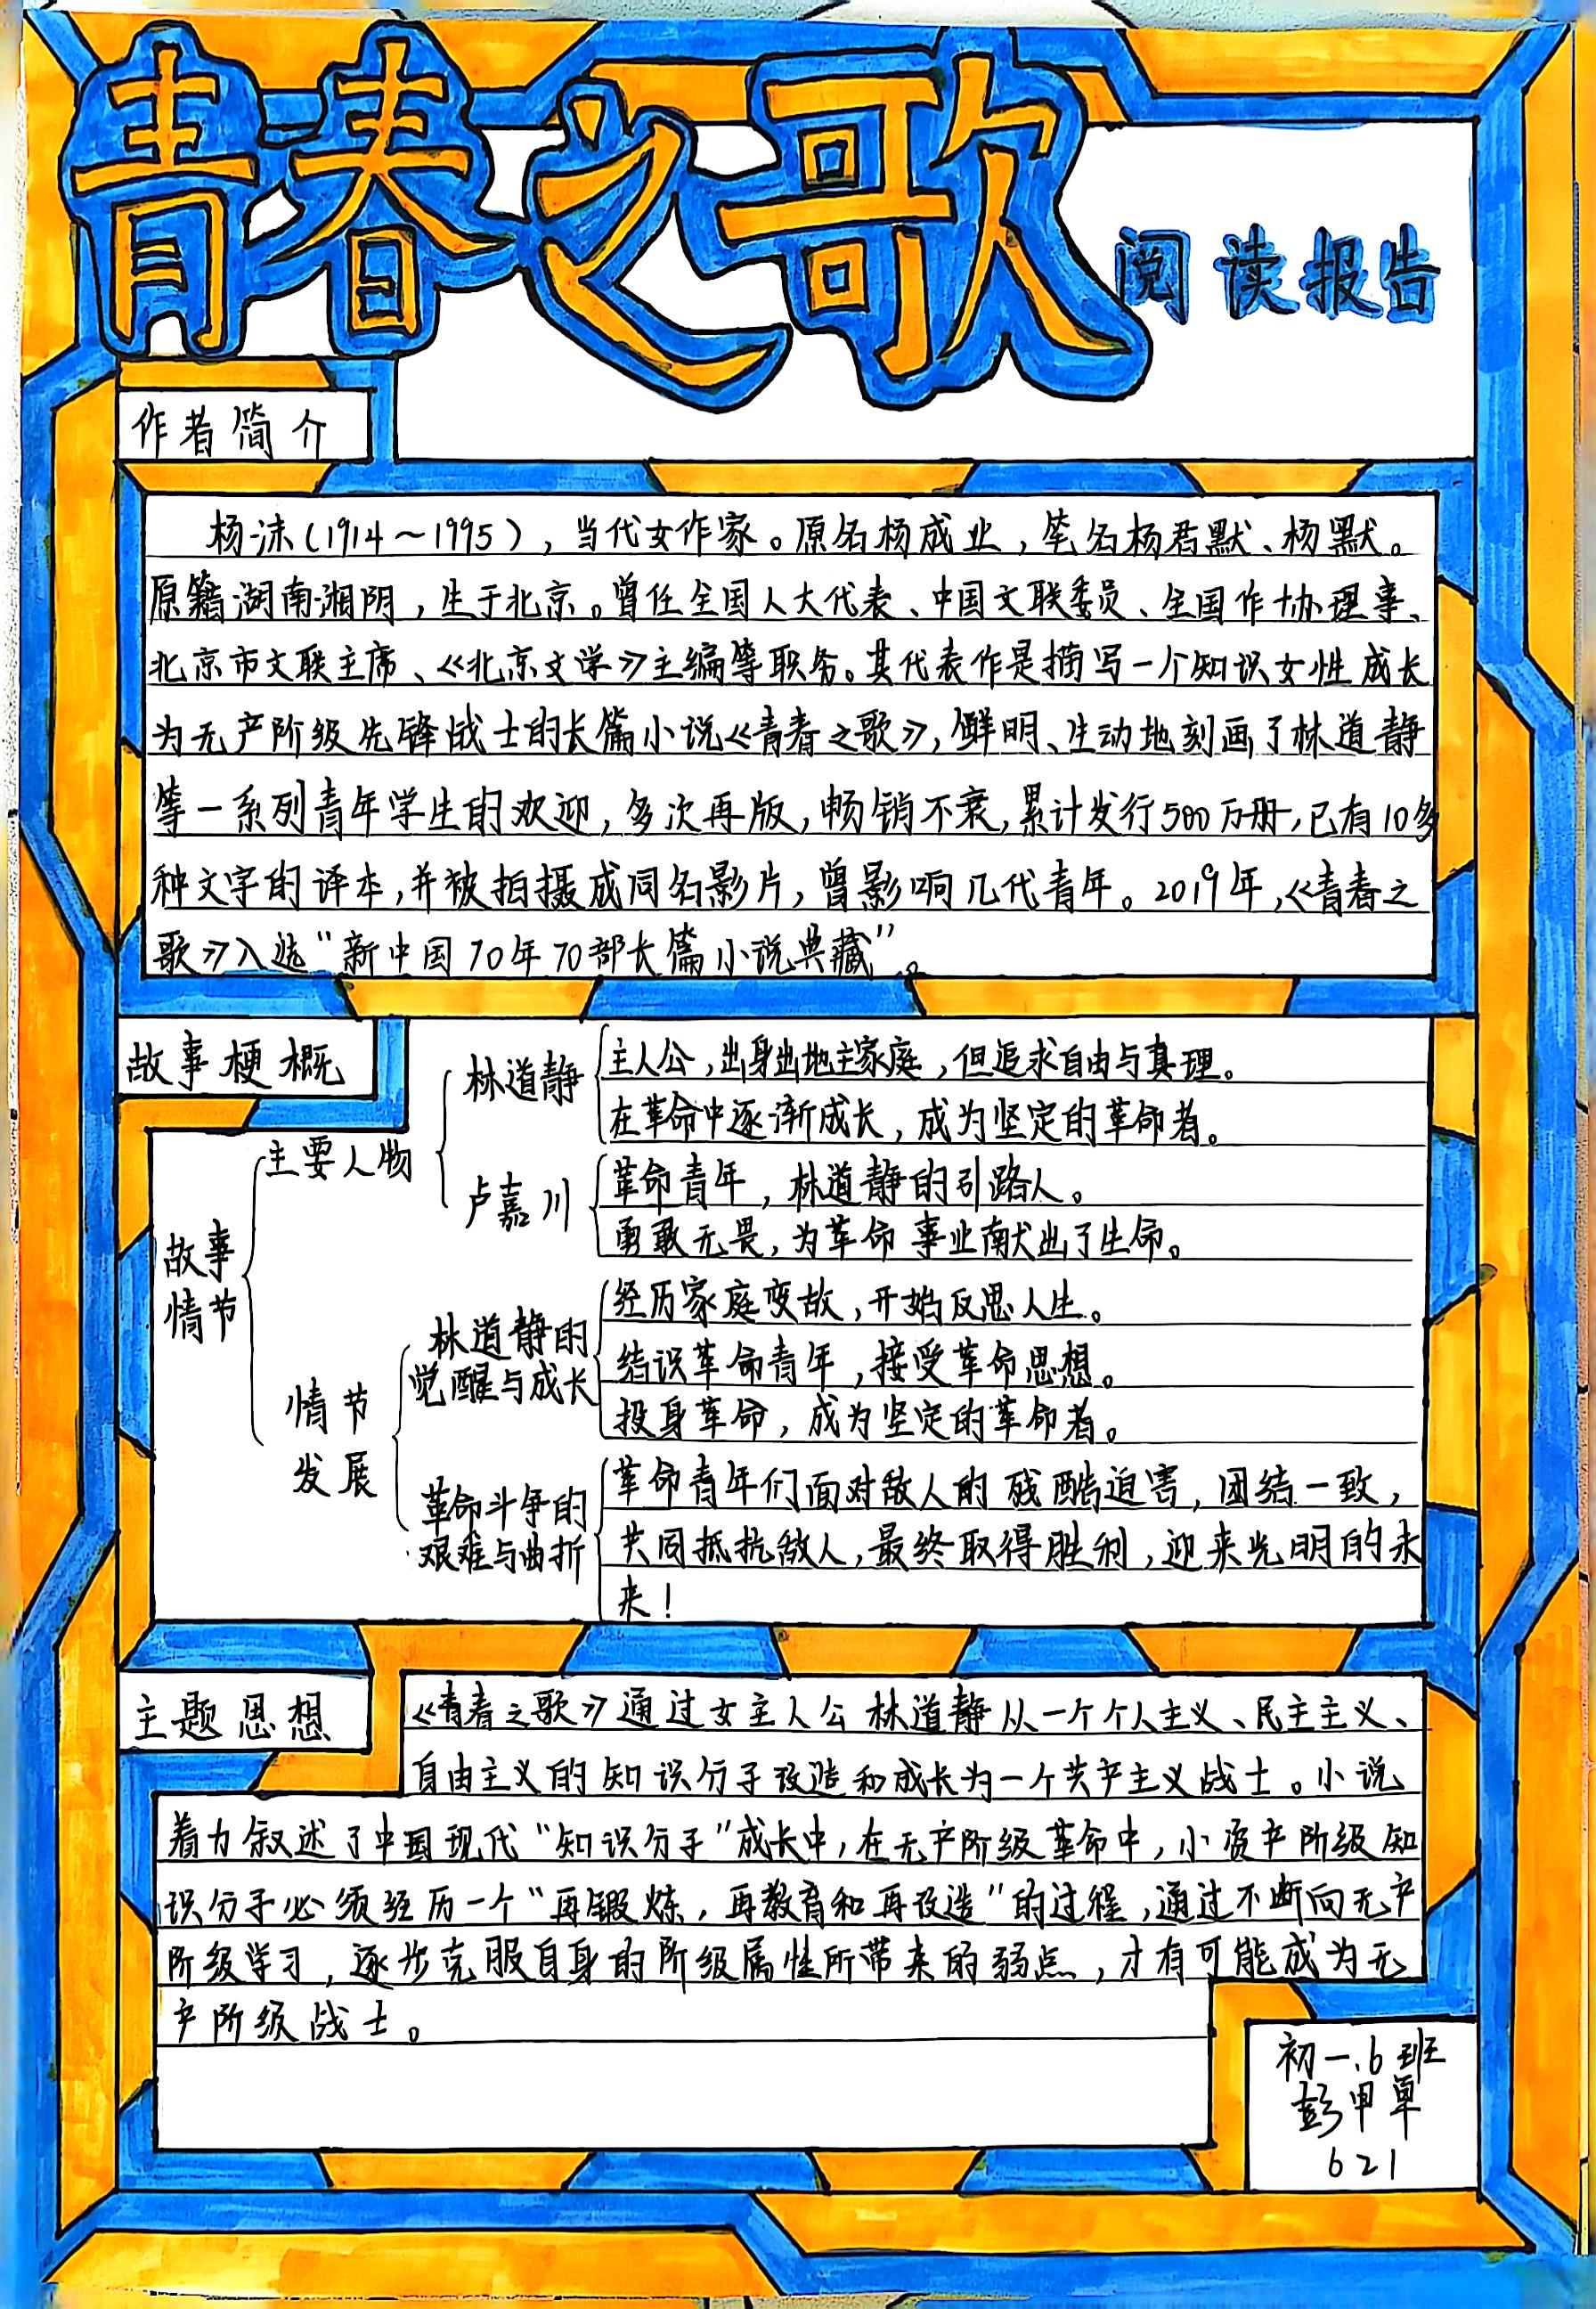 青春之歌
阅读报告
作者简介
杨沫(1914～1995)，当代女作家。原名杨成业，笔名杨君默、杨默。
原籍湖南湘阴，生于北京。曾任全国人大代表、中国文联委员、全国作协理事、
北京市文联主席、《北京文学》主编等职务。其代表作是描写一个知识女性成长
为无产阶级先锋战士的长篇小说《青春之歌》，鲜明、生动地刻画了林道静
等一系列青年学生的欢迎，多次再版，畅销不衰，累计发行500万册，已有10多
种文字的译本，并被拍摄成同名影片，曾影响几代青年。2019年，《青春之
歌》入选“新中国70年70部长篇小说典藏”。
故事梗概
故事
情节
主要人物
林道静
主人公，出身出地主家庭，但追求自由与真理。
在革命中逐渐成长，成为坚定的革命者。
卢嘉川
革命青年，林道静的引路人。
勇敢无畏，为革命事业献出了生命。
情节
发展
林道静的
觉醒与成长
经历家庭变故，开始反思人生。
结识革命青年，接受革命思想。
投身革命，成为坚定的革命者。
革命斗争的
艰难与曲折
革命青年们面对敌人的残酷迫害，团结一致，
共同抵抗敌人，最终取得胜利，迎来光明的未
来！
主题思想
《青春之歌》通过女主人公林道静从一个个人主义、民主主义、
自由主义的知识分子改造和成长为一个共产主义战士。小说
着力叙述了中国现代“知识分子”成长中，在无产阶级革命中，小资产阶级知
识分子必须经历一个“再锻炼，再教育和再改造”的过程，通过不断向无产
阶级学习，逐步克服自身的阶级属性所带来的弱点，才有可能成为无
产阶级战士。
初一.6班
彭甲单
621